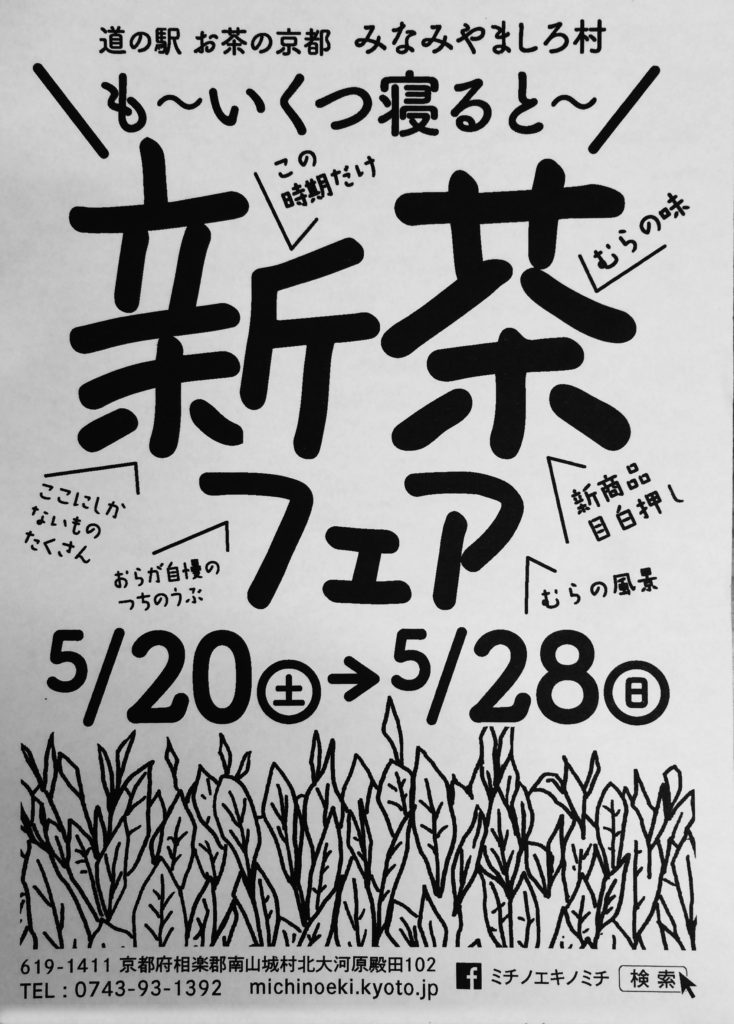 道の駅 お茶の京都 みなみやましろ村
も〜いくつ寝ると〜
この
時期だけ
むらの味
新茶
フェア
ここにしか
ないもの
たくさん
おらが自慢の
つちのうぶ
新商品
目白押し
むらの風景
5/20土→5/28日
619-1411 京都府相楽郡南山城村北大河原殿田102
TEL : 0743-93-1392 michinoeki.kyoto.jp
ミチノエキノミチ 検索